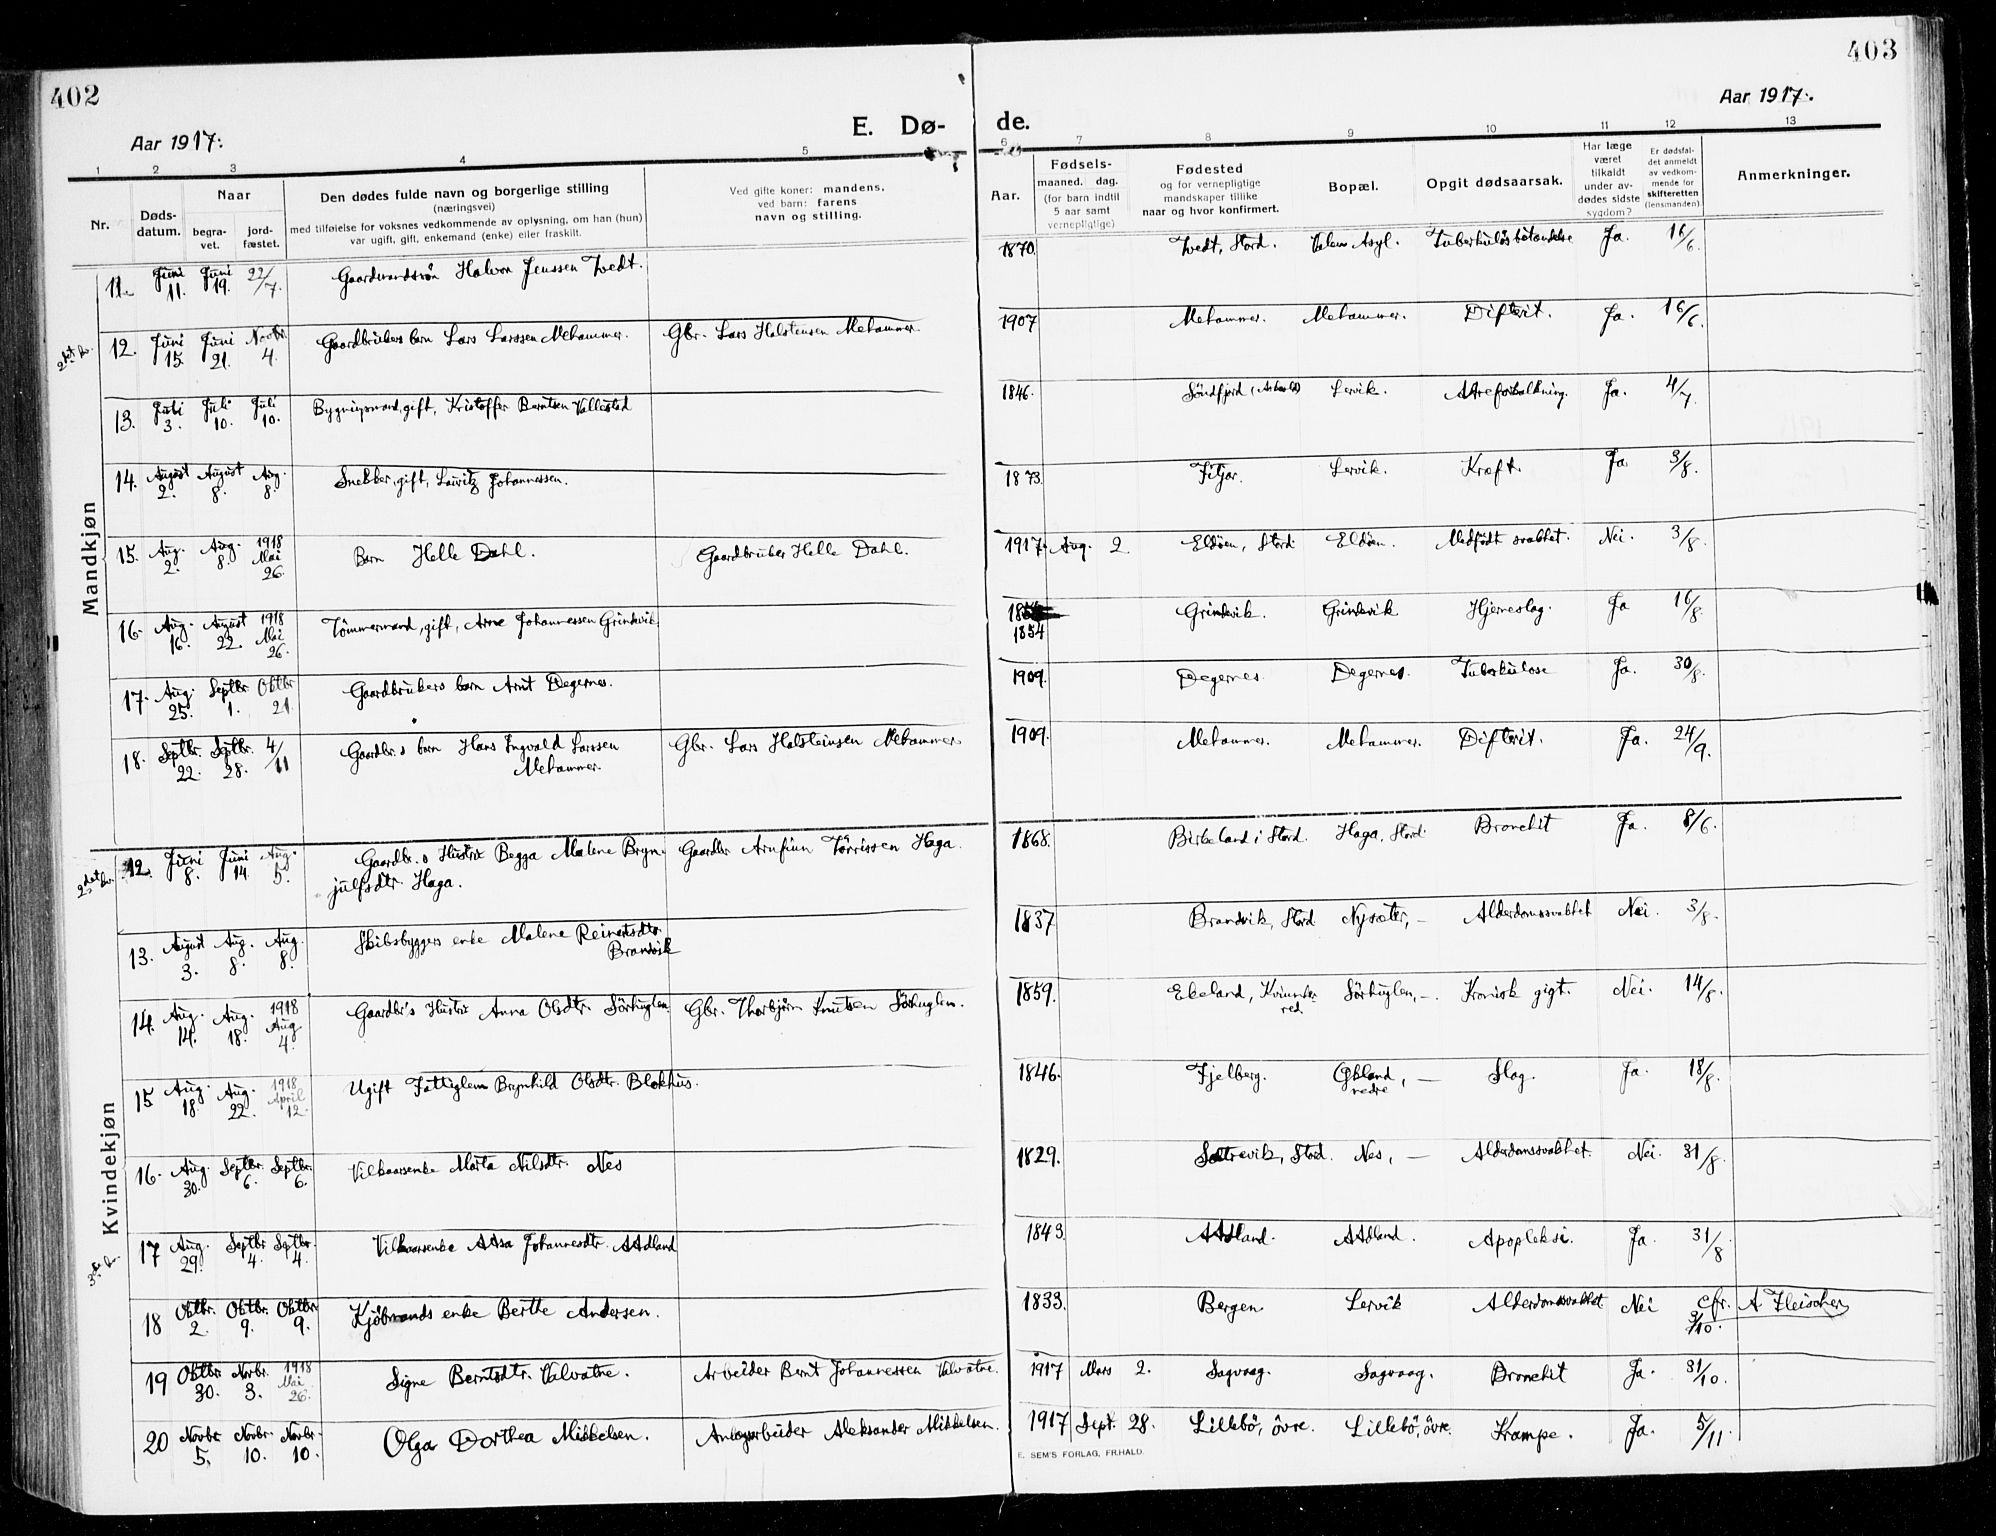 402
Aar 1917.
E. Dø-
1 2 3 4 5
Nr.
Døds-
datum.
Naar
begra-
vet.
jord-
fæstet.
Den dødes fulde navn og borgerlige stilling
(næringsvei)
med tilføielse for voksnes vedkommende av oplysning, om han (hun)
var ugift, gift, enkemand (enke) eller fraskilt.
Ved gifte koner: mandens,
ved barn: farens
navn og stilling.
Mandkjøn
11. Juni 11. Juni 19. 22/7. Gaardmandssøn Halvor Jenssen Tvedt.
2det kv. 12. Juni 15. Juni 21. Novbr. 4. Gaardbrukers barn Lars Larssen Mehammer. Gbr. Lars Halsteinsen Mehammer.
13. Juli 3. Juli 10. Juli 10. Bygningsmand, gift, Kristoffer Berntsen Vallestad
14. August 2. August 8. Aug. 8. Snekker, gift, Lauritz Johannessen.
15. Aug. 2. Aug. 8. 1918 Mai 26. Barn Helle Dahl. Gaardbruker Helle Dahl.
16. Aug. 16. August 22. 1918 Mai 26. Tömmermand, gift, Arne Johannessen Grindevik
17. Aug. 25. Septbr. 1. Oktbr. 21. Gaardbrukers barn Arnt Degernes.
18. Septbr. 22. Septbr. 28. 4/11 Gaardbr.s barn Hans Ingvald Larssen
Mehammer. Gbr. Lars Halsteinsen Mehammer
Kvindekjøn
2det kv. 12. Juni 8. Juni 14. Aug. 5. Gaardbr.s Hustru Begga Malene Bryn-
julfsdtr. Haga. Gaardbr Arnfinn Tørrissen Haga.
13. August 3. Aug. 8. Aug. 8. Skibsbyggers enke Malene Reinertsdtr
Brandvik
14. Aug. 14. Aug. 18. 1918 Aug 4. Gaardbr's Hustru Anna Olsdtr. Sörhuglen. Gbr. Thorbjörn Knutsen Sörhuglen.
15 Aug. 18. Aug. 22. 1918 April 12. Ugift Fattiglem Brynhild Olsdtr. Blokhus.
16. Aug. 30. Septbr. 6. Septbr. 6. Vilkaarsenke Marta Nilsdtr. Nes
3die kv. 17 Aug. 29. Septbr 4. Septbr. 4. Vilkaarsenke Aasa Johannesdtr. Aadland
18 Oktbr. 2. Oktbr. 9. Oktbr 9. Kjöbmands enke Berthe Andersen.
19 Oktbr 30. Novbr. 3. 1918 Mai 26. Signe Berntsdtr. Valvatne. Arbeider Bernt Johannessen Valvatne.
20 Novbr 5. Novbr. 10. Novbr. 10. Olga Dorthea Mikkelsen. Anlægsarbeider Aleksander Mikkelsen.
403
Aar 1917.
de.
6 7 8 9 10 11 12 13
Aar.
Fødsels-
maaned. dag.
(for barn indtil
5 aar samt
vernepligtige)
Fødested
og for vernepligtige
mandskaper tillike
naar og hvor konfirmert.
Bopæl.
Opgit dødsaarsak.
Har læge
været
tilkaldt
under av-
dødes sidste
sygdom?
Er dødsfal-
det anmeldt
av vedkom-
mende for
skifteretten
(lensmanden)
Anmerkninger.
1870. Tvedt, Stord. Valen Asyl. Tuberkuløs betændelse Ja. 16/6.
1907 Mehammer. Mehammer. Difterit. Ja. 16/6.
1846. Söndfjord (Askvold) Lervik. Aareforkalkning. Ja. 4/7.
1873. Fitjar. Lervik. Kræft. Ja 3/8.
1917. Aug. 2. Eldöen, Stord Eldöen. Medfödt svakhet. Nei. 3/8.
1854 Grindevik. Grindevik Hjerneslag. Ja 16/8.
1909. Degernes. Degernes. Tuberkulose Ja. 30/8.
1909. Mehammer. Mehammer. Difterit. Ja. 24/9.
1868. Birkeland i Stord. Haga, Stord. Bronchit Ja. 8/6.
1837 Brandvik, Stord Nysæter, – Alderdomssvakhet Nei. 3/8.
1859. Ekeland, Kvinnhe-
red Sörhuglen, –. Kronisk gigt. Nei. 14/8.
1846. Fjelberg. Økland, –
nedre Slag. Ja. 18/8.
1829. Sætrevik, Stord. Nes, – Alderdomssvakhet. Nei. 31/8.
1843 Aadland. Aadland. Apopleksi. Ja. 31/8
1833. Bergen Lervik Alderdomssvakhet Nei cfr. 3/10. A Fleischer
1917 Mars 2. Sagvaag. Sagvaag. Bronchit Ja. 31/10.
1917 Sept. 28. Lillebö, övre. Lillebö, övre. Krampe. Ja. 5/11.
E. SEM'S FORLAG, FR.HALD.